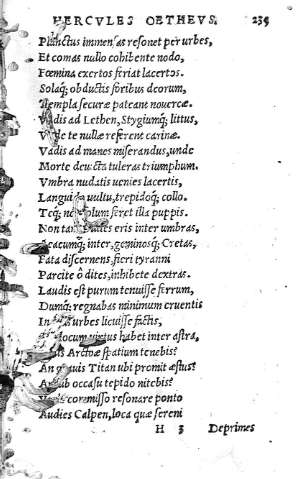 HERCVLES OETHEVS. 239
Planctus immensas resonet per urbes,
Et comas nullo cohibente nodo,
Fœmina exertos feriat lacertos.
Solaq; obductis foribus deorum,
Templa securæ pateant nouercæ.
Vadis ad Lethen, Stygiumq; littus,
te nullæ referent carinæ.
Vadis ad manes miserandus, unde
Morte deuicta tuleras triumphum.
Vmbra nudatis uenies lacertis,
Langui uultu, trepidoq; collo.
Teq; solum feret illa puppis.
Non tamen eris inter umbras,
inter, geminosq; Cretas,
Fata discernens, fieri tyranni
Parcite ô dites, inhibete dextras.
Laudis est purum tenuisse ferrum,
Dumq; regnabas minimum cruentis
In urbes licuisse fictis,
locum uirtus habet inter astra,
Arctoæ spatium tenebis?
An grauis Titan ubi promit æstus?
An sub occasu tepido nitebis?
commisso resonare ponto
Audies Calpen, loca quæ sereni
H 3 Deprimes